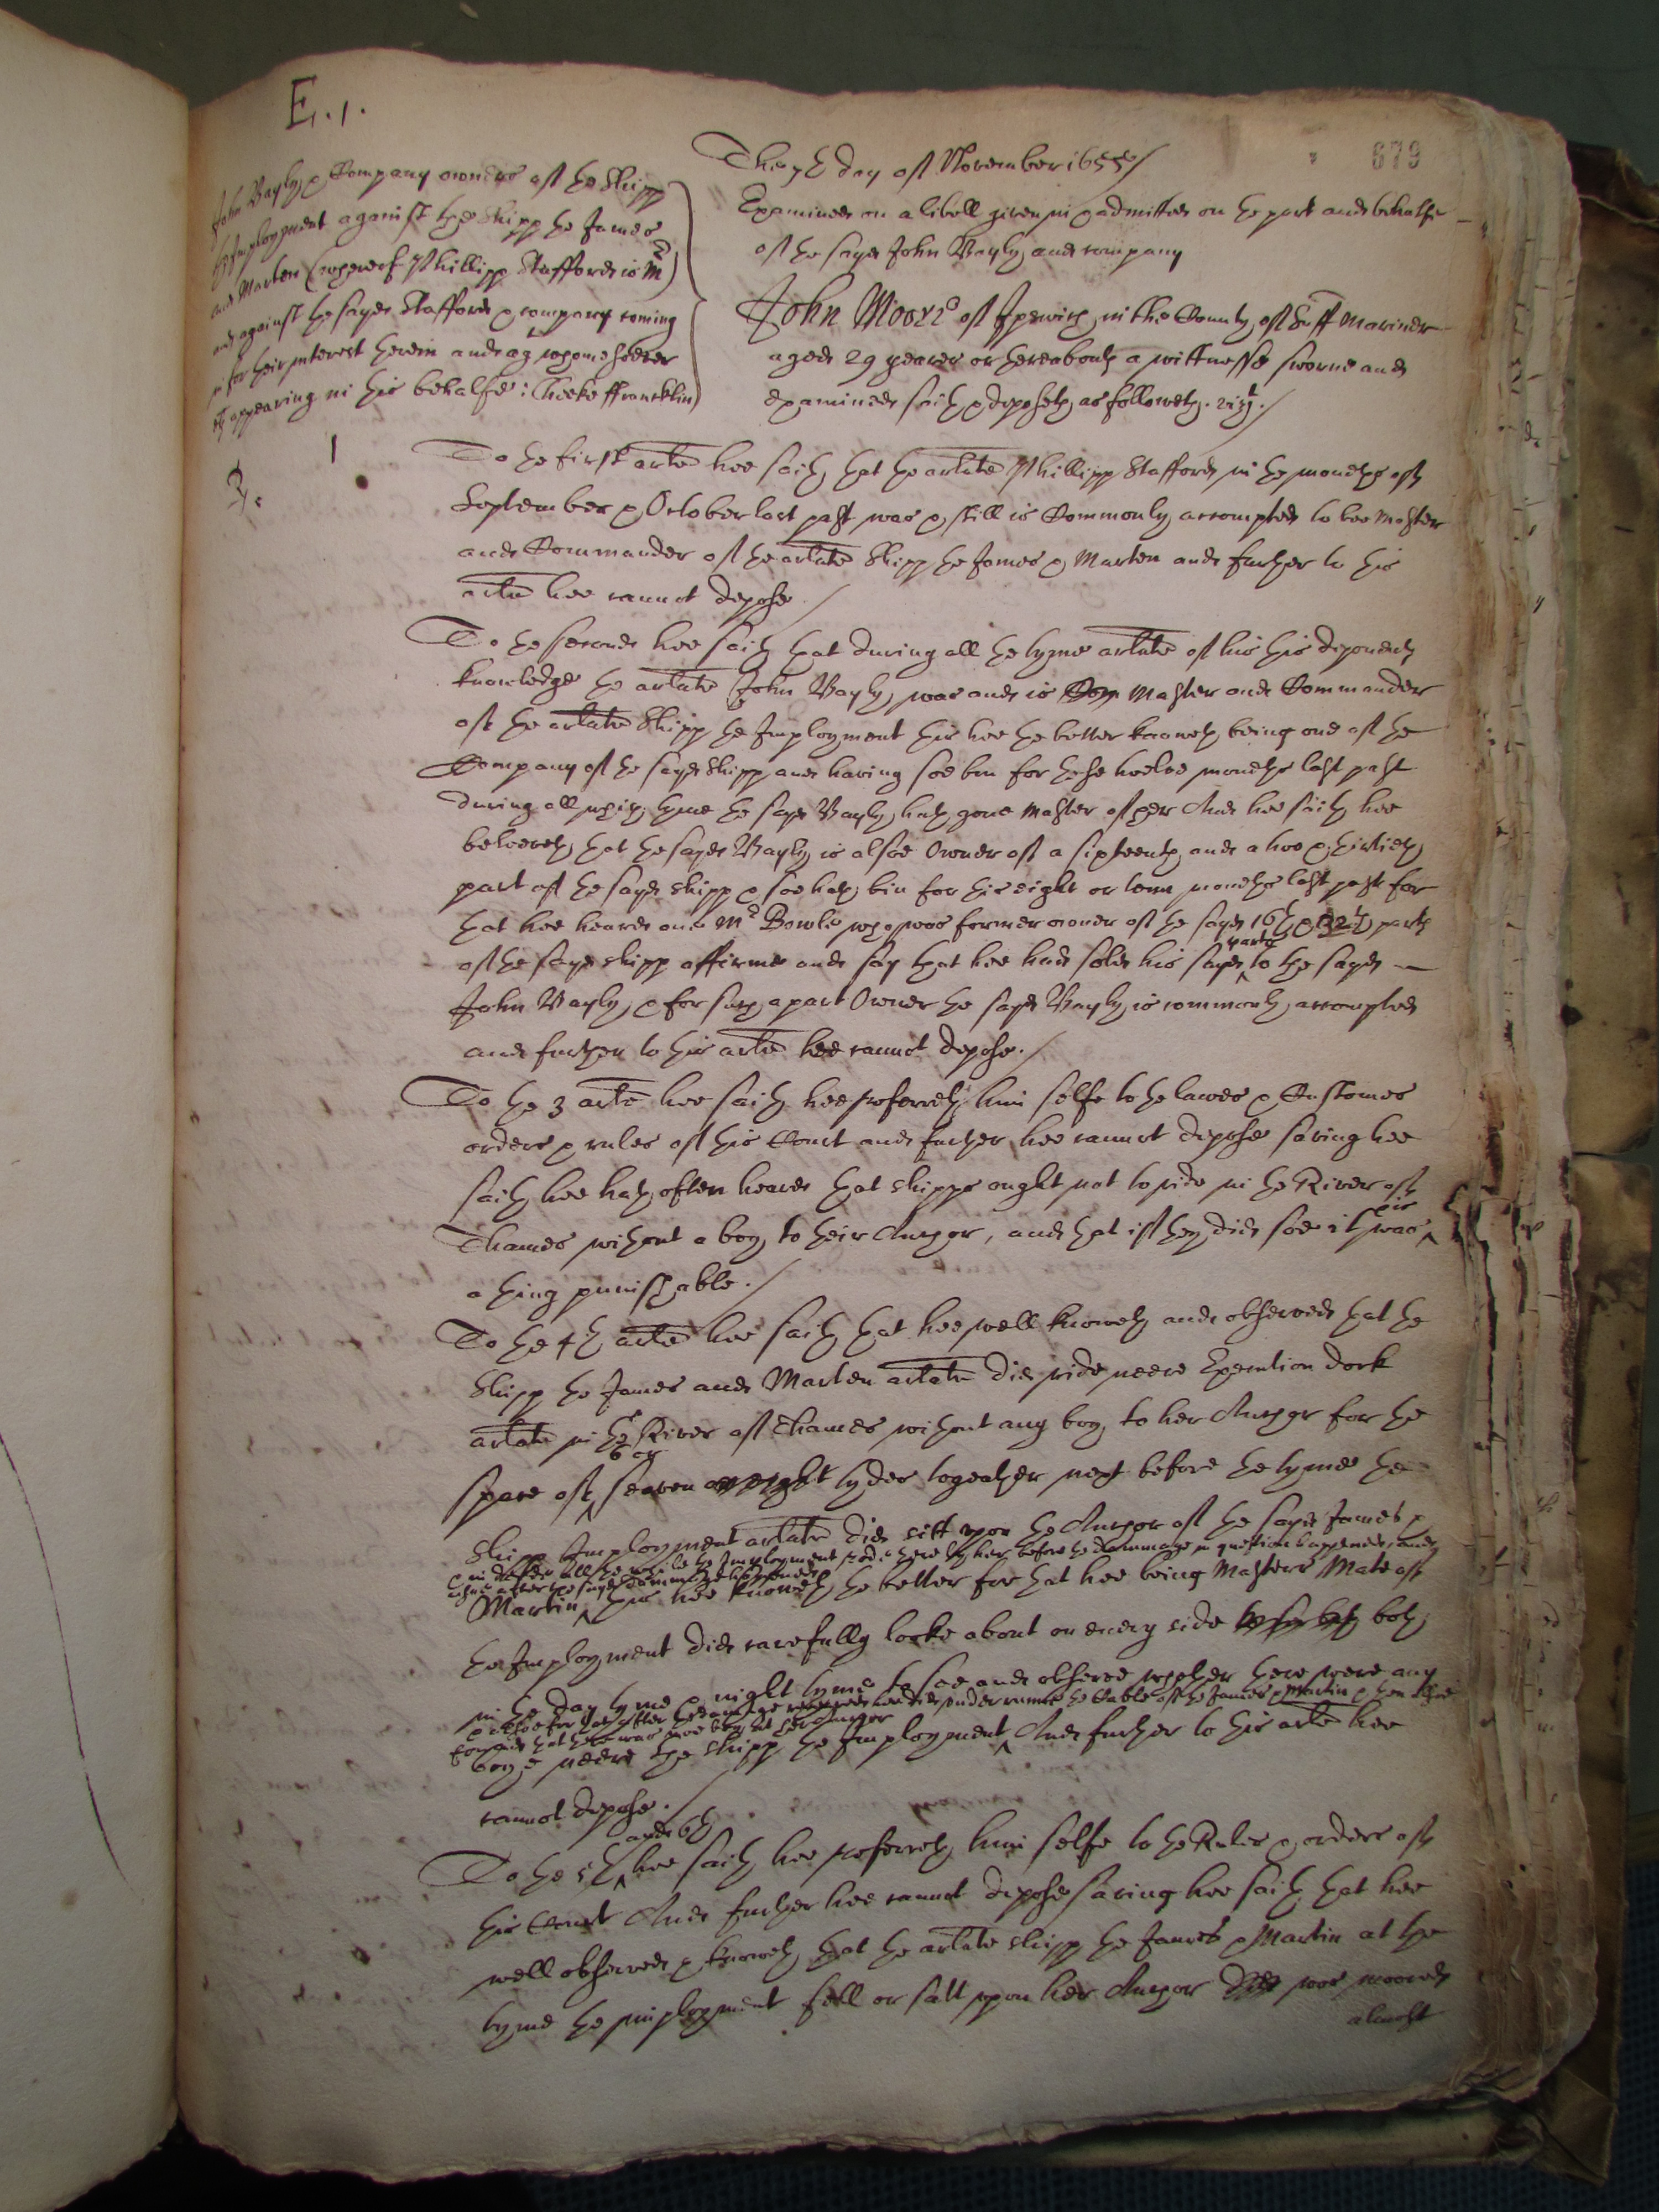 E. 1.
679
John Bayly & Company owners of the Shipp
the Imployment against the Shipp the James
and Marten (whereof Phillipp Stafford is Mr)
and against the sayd Stafford & company coming
in for their interest therein and agt whomesoever
etc appearing in this behalfe: Cheeke ffrancklin
The 7th day of November 1655/
Examined on a libell given in & admitted on the part and behalfe
of the sayd John Bayly and company
John Moore of Ipswich in the County of Suff Mariner
aged 29 yeares or thereabouts a wittnesse sworne and
examined saith & deposeth as followeth. vizt./
1
To the first arlte hee saith that the arlate Phillipp Stafford in the moneths of
September & October last past was & still is Commonly accompted to bee Master
and Commander of the arlate Shipp the James & Marten and further to this
arlte hee cannot depose./
To the second hee saith that during all the tyme arlate of his this deponents
knowledge the arlate John Bayly, was and is Com Master and Commander
of the arlate Shipp the Imployment this hee the better knoweth being one of the
Company of the sayd Shipp and having soe bin for these twelve moneths last past
during all which tyme the sayd Bayly hath gone Master of her And hee saith hee
beleeveth that the sayd Bayly is alsoe Owner of a sixteenth and a two & thirtieth
part of the sayd shipp & soe hath bin for this eight or tenn moneths last past for
that hee heard one Mr Bowle who was former owner of the sayd 16th & 32th parts
of the sayd shipp affirme and say that hee had sold his sayd parts to the sayd
John Bayly, & for such a part Owner the sayd Bayly is commonly accompted
and further to this arlte hee cannot depose./
To the 3 arlte hee saith hee referreth him selfe to the lawes & Customes
orders & rules of this Court and further hee cannot depose saving hee
saith hee hath often heard that shipps ought not to ride in the River of
Thames without a boy to their Anchor, and that if they did soe it was is
a thing punishable./
To the 4th arlte hee saith that hee well knoweth and observed that the
Shipp the James and Marten arlate did ride neere Execution dock
arlate in the River of Thames without any boy to her Anchor for the
6 or
space of seaven or eight tydes togeather next before the tyme the
Shipp Imployment arlate did sitt upon the Anchor of the sayd James &
& in deed all the while the Imployment rode there by her before the dammage in question happened, and
alsoe after the sayd dammage happened
Martin this hee knoweth the better for that hee being Masters Mate of
the Imployment did carefully looke about on every side both
in the day tyme & night tyme to see and observe whether there were any
& the day after the damage received hee did underrunne the Cable of the James & Martin & then alsoe
found that there was noe boy at her Anchor
boye neere the shipp the Imployment And further to this arlte hee
cannot depose./
and 6th
To the 5th hee saith hee referreth him selfe to the Rules & orders of
this Court And further hee cannot depose saving hee saith that hee
well observed & knoweth that the arlate shipp the James & Martin at the
tyme the Imployment fell or satt upon her Anchor was moored
almost